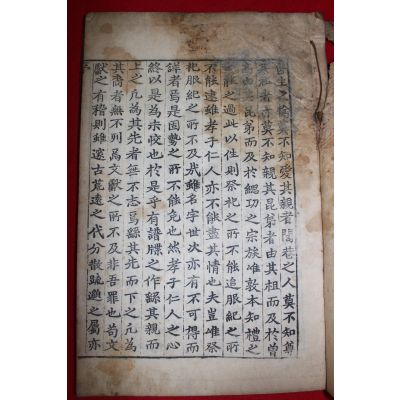 含生之倫莫不知愛其親者閭巷之人莫不知尊
其祖者亦莫不知親其昆弟者由其祖而及於曾
高由其昆弟而及於緦功之宗族唯敦本知禮之
能之過此以往則祭祀之所不能追服紀之所
不能逮雖孝子仁人亦不能盡其情也夫豈唯祭
祀服紀之所不及哉雖名字世次亦有不可得而
詳者焉是固勢之所不能免也然孝子仁人之心
終以是為未恔也於是乎有譜牒之作錄其親而
上之凡為其先者無不志焉錄其先而下之凡為
其裔者無不列焉文獻之所不及非吾罪也苟文
獻之有稽則雖遼古荒遠之代分散疏邈之屬亦